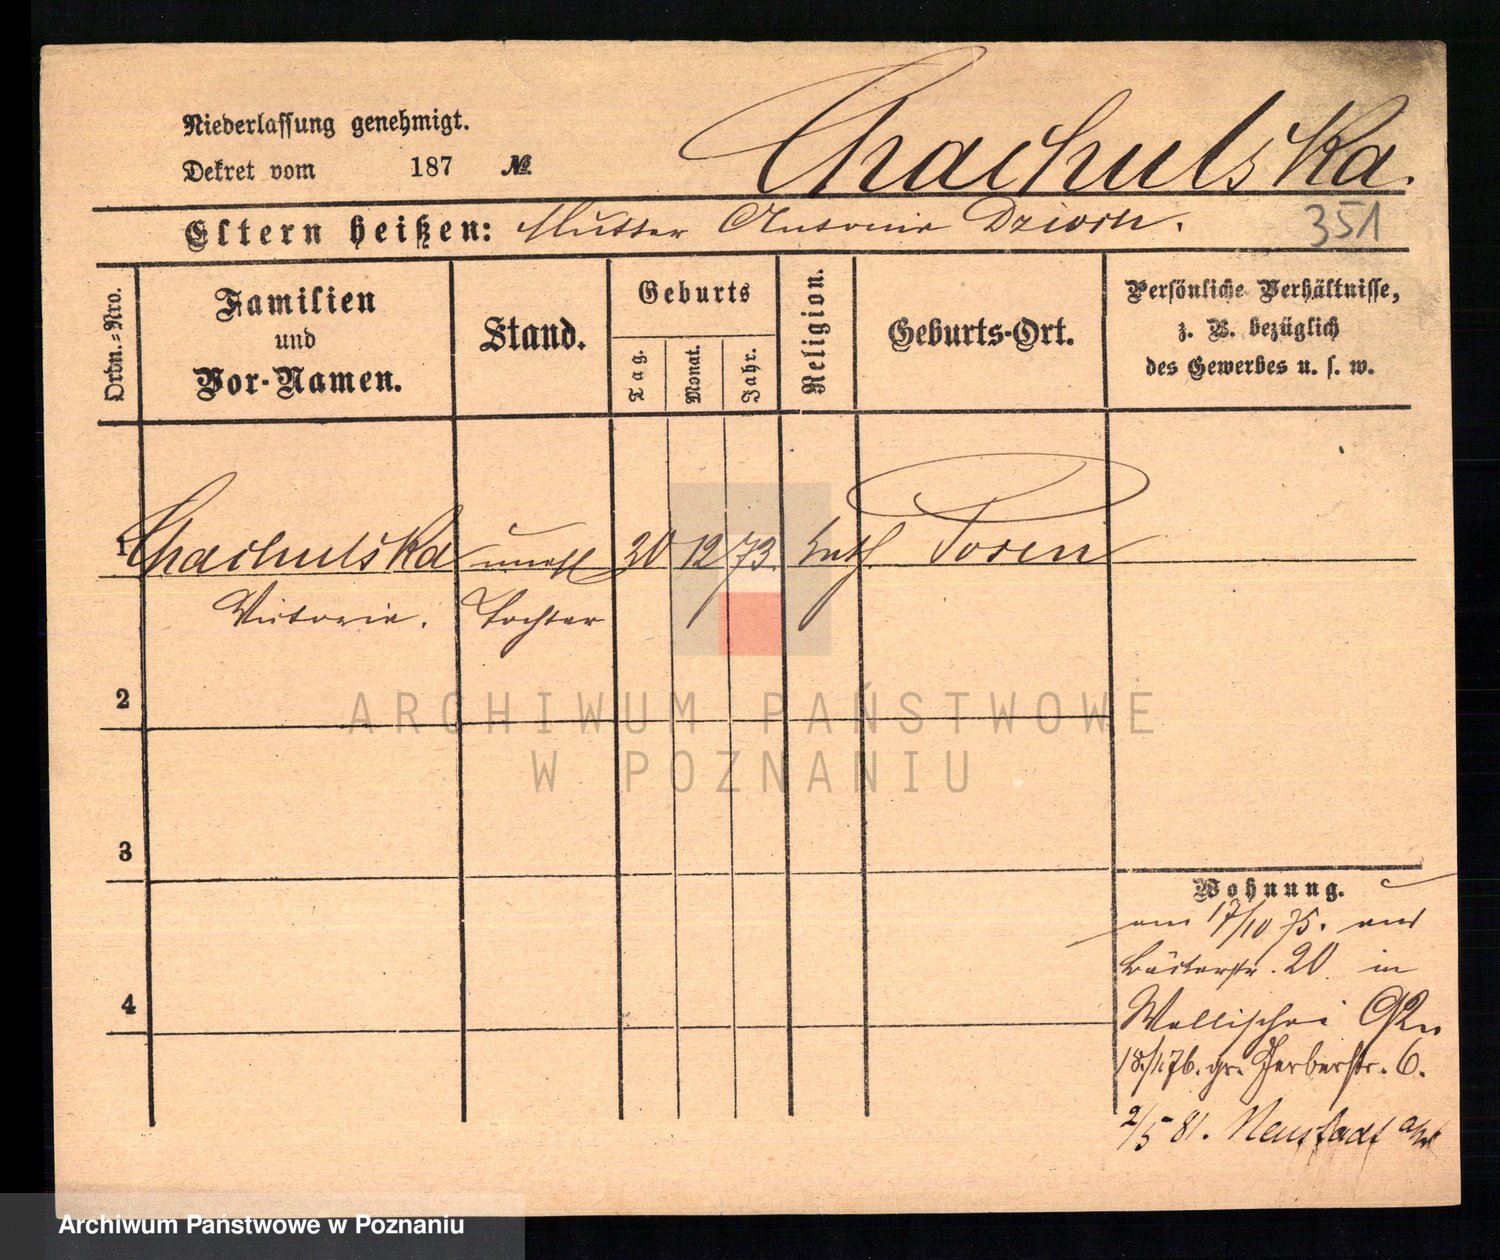 Niederlassung genehmigt.
Dekret vom 187 №
Chachulska.
Eltern heißen: Mutter Antonie Dziosk.
351
Ordn.-Nro.
Familien
und
Vor-Namen.
Stand.
Geburts
Tag.
Monat.
Jahr.
Religion.
Geburts-Ort.
Persönliche Verhältnisse,
z. B. bezüglich
des Gewerbes u. s. w.
1 Chachulska unehl 20 12 73. kath. Posen
Victoria. Tochter
2
3
4
Wohnung.
am 17/10 75. aus
20 in
Wallischei 92
18/11 76. gr. Gerberstr. 6.
2/5 81. Neustadt a/W
ARCHIWUM PAŃSTWOWE
W POZNANIU
Archiwum Państwowe w Poznaniu